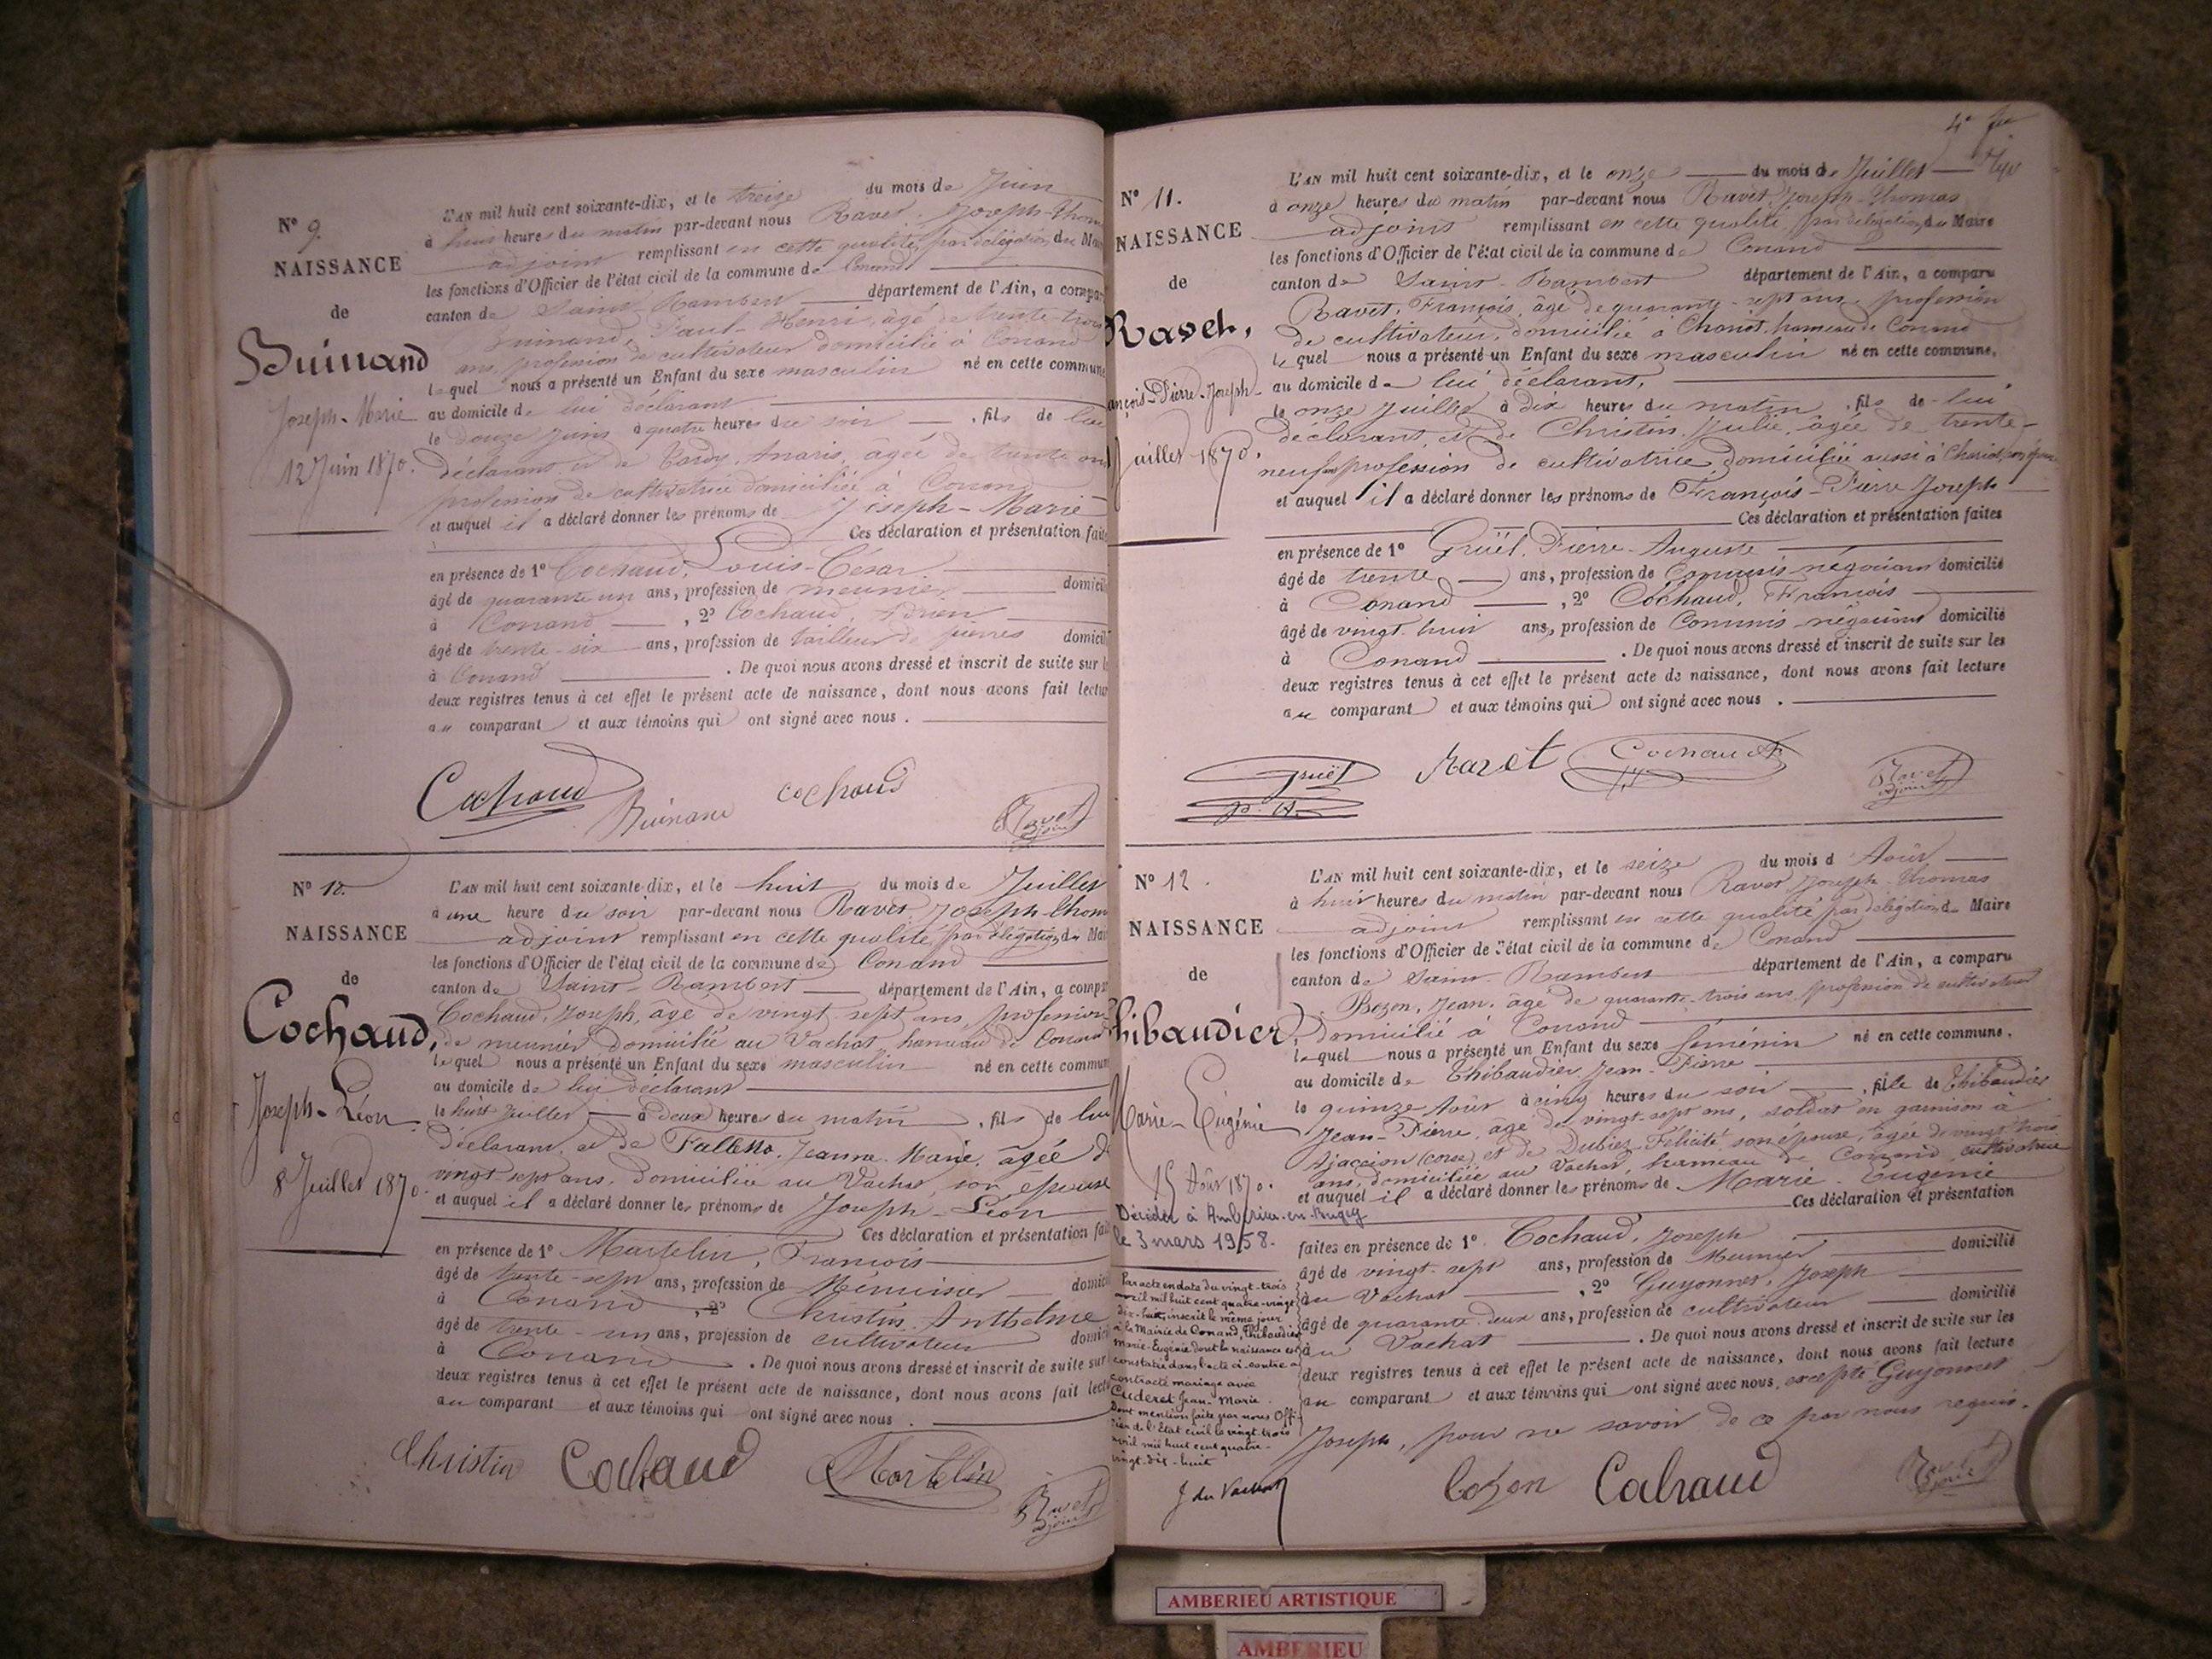 N° 9.
NAISSANCE
de
Buinand
Joseph-Marie
12 Juin 1870.
L'AN mil huit cent soixante-dix, et le treize du mois de Juin
à huit heures du matin par-devant nous Ravet, Joseph-Thom
adjoint remplissant en cette qualité, par délégation du Mai
les fonctions d'Officier de l'état civil de la commune de Conand
canton de Saint-Rambert département de l'Ain, a compar
Buinand, Paul-Henri, âgé de trente-trois
ans, profession de cultivateur domicilié à Conand
lequel nous a présenté un Enfant du sexe masculin né en cette commune
au domicile de lui déclarant
le douze juin à quatre heures du soir, fils de lui
déclarant, et de Tardy, Anaris, âgée de trente ans
profession de cultivatrice domiciliée à Conand
et auquel il a déclaré donner les prénoms de Joseph-Marie
Ces déclaration et présentation faite
en présence de 1° Cochaud, Louis-César
âgé de quarante un ans, profession de meunier domicil
à Conand, 2° Cochaud, Adrien
âgé de trente-six ans, profession de tailleur de pierres domicil
à Conand. De quoi nous avons dressé et inscrit de suite sur l
deux registres tenus à cet effet le présent acte de naissance, dont nous avons fait lectur
au comparant et aux témoins qui ont signé avec nous.
Cochaud Buinand Cochaud Ravet adjoint
N° 10.
NAISSANCE
de
Cochaud,
Joseph-Léon
8 Juillet 1870.
L'AN mil huit cent soixante-dix, et le huit du mois de Juillet
à une heure du soir par-devant nous Ravet, Joseph-Thom
adjoint remplissant en cette qualité, par délégation du Mai
les fonctions d'Officier de l'état civil de la commune de Conand
canton de Saint-Rambert département de l'Ain, a compar
Cochaud, Joseph, âgé de vingt-sept ans, profession
de meunier domicilié au Vachat, hameau de Conand
lequel nous a présenté un Enfant du sexe masculin né en cette commun
au domicile de lui déclarant
le huit Juillet à deux heures du matin, fils de lui
déclarant, et de Falletto, Jeanne-Marie, âgée d
vingt-sept ans, domiciliée au Vachat, son épouse
et auquel il a déclaré donner les prénoms de Joseph-Léon
Ces déclaration et présentation fai
en présence de 1° Martelin, François
âgé de trente-sept ans, profession de Ménuisier domici
à Conand, 2° Christin, Anthelme
âgé de trente-un ans, profession de cultivateur domici
à Conand. De quoi nous avons dressé et inscrit de suite sur
deux registres tenus à cet effet le présent acte de naissance, dont nous avons fait lect
au comparant et aux témoins qui ont signé avec nous.
Christin Cochaud Martelin Ravet adjoint
4e
N° 11.
NAISSANCE
de
Ravet,
ançois-Pierre-Joseph
Juillet 1870.
L'AN mil huit cent soixante-dix, et le onze du mois de Juillet
à onze heures du matin par-devant nous Ravet, Joseph-Thomas
adjoint remplissant en cette qualité, par délégation du Maire
les fonctions d'Officier de l'état civil de la commune de Conand
canton de Saint-Rambert département de l'Ain, a comparu
Ravet, François, âgé de quarante-sept ans, profession
de cultivateur, domicilié à Chariot, hameau de Conand
lequel nous a présenté un Enfant du sexe masculin né en cette commune,
au domicile de lui déclarant,
le onze Juillet à dix heures du matin, fils de lui
déclarant, et de Christin, Julie, âgée de trente-
neuf ans profession de cultivatrice, domiciliée aussi à Chariot, son épouse
et auquel il a déclaré donner les prénoms de François-Pierre Joseph
Ces déclaration et présentation faites
en présence de 1° Gruël, Pierre-Auguste
âgé de trente ans, profession de Commis négociant domicilié
à Conand, 2° Cochaud, François
âgé de vingt-huit ans, profession de Commis-négociant domicilié
à Conand. De quoi nous avons dressé et inscrit de suite sur les
deux registres tenus à cet effet le présent acte de naissance, dont nous avons fait lecture
au comparant et aux témoins qui ont signé avec nous.
Gruël p. A. Ravet Cochaud F. Ravet adjoint
N° 12.
NAISSANCE
de
hibaudier,
Marie-Eugénie
15 Août 1870.
Décédée à Ambérieu-en-Bugey
le 3 mars 1958.
Par acte en date du vingt-trois
avril mil huit cent quatre-vingt
dix-huit, inscrit le même jour
à la Mairie de Conand, Thibaudier
Marie-Eugénie dont la naissance est
constatée dans l'acte ci-contre a
contracté mariage avec
Cuderet Jean-Marie.
Dont mention faite par nous Offi-
cier de l'Etat civil le vingt-trois
avril mil huit cent quatre-
vingt-dix-huit
J du Vachat
L'AN mil huit cent soixante-dix, et le seize du mois d Août
à huit heures du matin par-devant nous Ravet Joseph-Thomas
adjoint remplissant en cette qualité par délégation du Maire
les fonctions d'Officier de l'état civil de la commune de Conand
canton de Saint-Rambert département de l'Ain, a comparu
Bozon, Jean, âgé de quarante-trois ans, profession de cultivateur
domicilié à Conand
lequel nous a présenté un Enfant du sexe féminin né en cette commune.
au domicile de Thibaudier, Jean-Pierre
le quinze Août à cinq heures du soir, fille de Thibaudier
Jean-Pierre, âgé de vingt-sept ans, soldat en garnison à
Ajaccion (corse) et de Dubiez Félicité son épouse, âgée de vingt trois
ans, domiciliée au Vachat, hameau de Conand, cultivatrice
et auquel il a déclaré donner les prénoms de Marie-Eugénie
Ces déclaration et présentation
faites en présence de 1° Cochaud, Joseph
âgé de vingt-sept ans, profession de Meunier domicilié
au Vachat, 2° Guyonnet, Joseph
âgé de quarante-deux ans, profession de cultivateur domicilié
au Vachat. De quoi nous avons dressé et inscrit de suite sur les
deux registres tenus à cet effet le présent acte de naissance, dont nous avons fait lecture
au comparant et aux témoins qui ont signé avec nous, excepté Guyonnet
Joseph, pour ne savoir de ce par nous requis.
Bozon Cochaud Ravet adjoint
AMBERIEU ARTISTIQUE
AMBERIEU